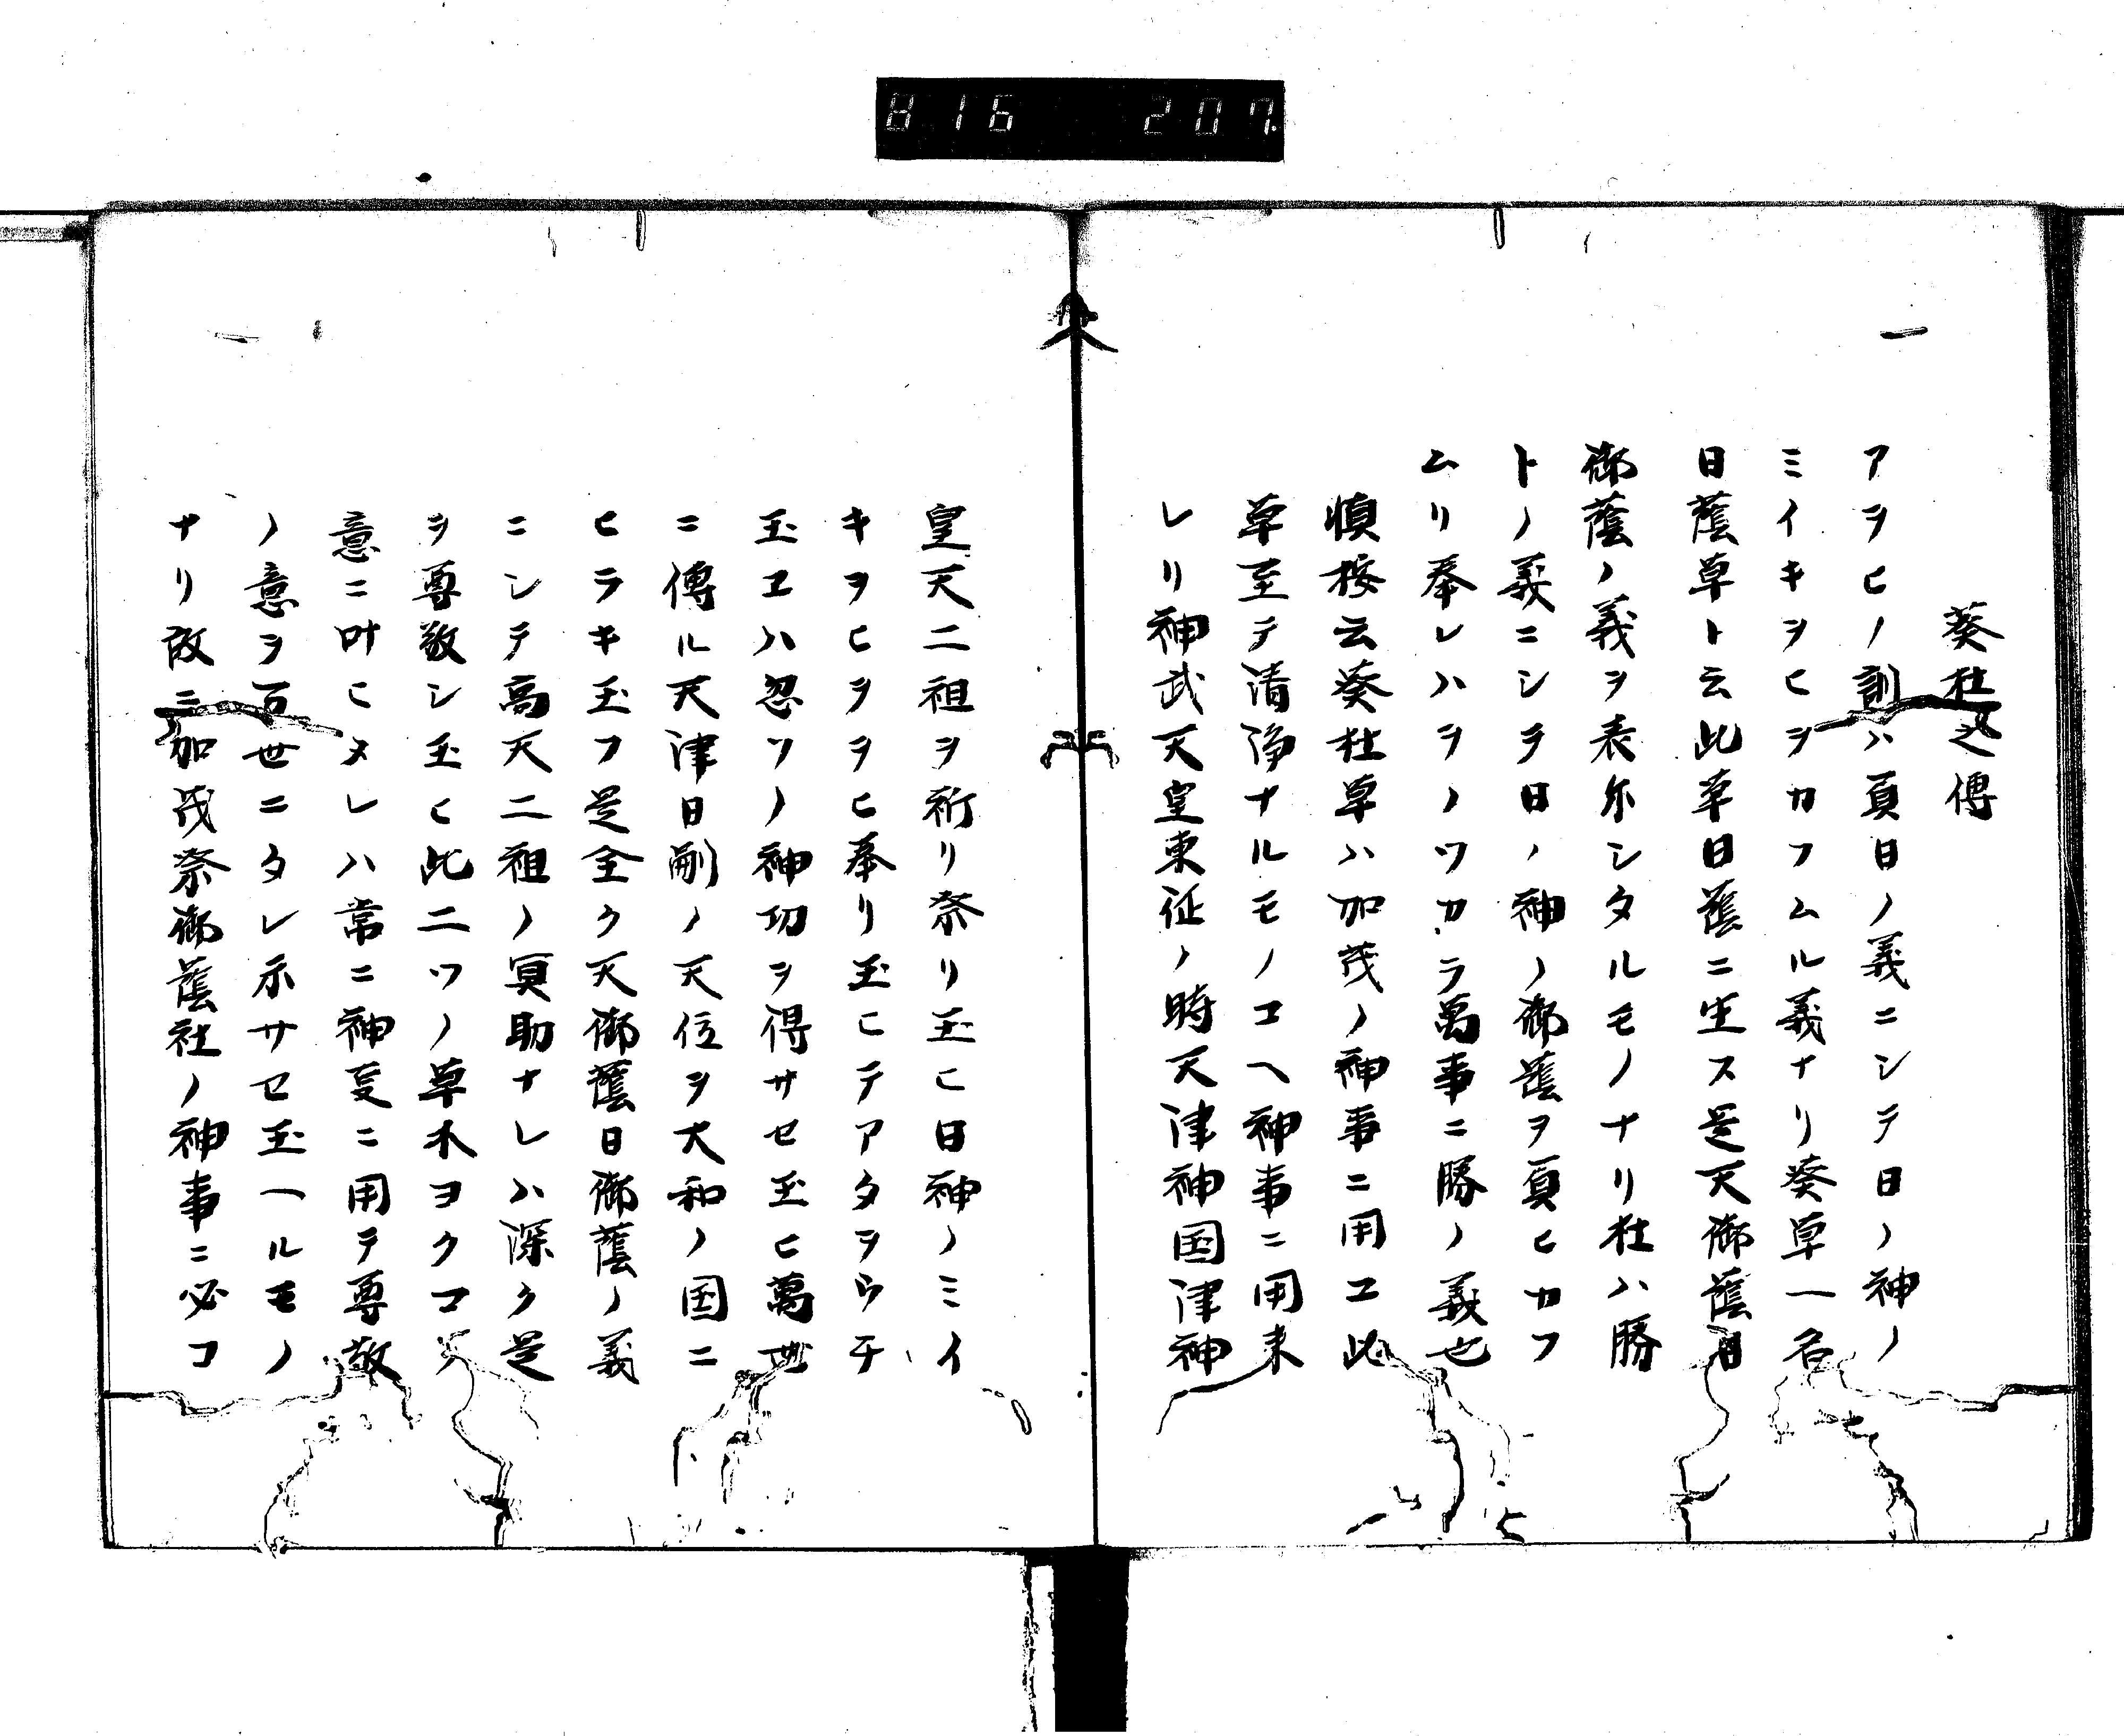 816 207.
一
葵桂之傳
アヲヒノ訓ハ負日ノ義ニシテ日ノ神ノ
ミイキヲヒヲカフムル義ナリ葵草一名
日蔭草ト云此草日蔭ニ生ス是天御蔭日
御蔭ノ義ヲ表尓シタルモノナリ桂ハ勝
トノ義ニシテ日ノ神ノ御蔭ヲ負ヒカフ
ムリ奉レハヲノツカラ萬事ニ勝ノ義也
慎按云葵桂草ハ加茂ノ神事ニ用ユ此
草至テ清浄ナルモノユヘ神事ニ用来
レリ神武天皇東征ノ時天津神国津神
皇天二祖ヲ祈リ祭リ玉ヒ日神ノミイ
キヲヒヲヲヒ奉リ玉ヒテアタヲウチ
玉ヱハ忽ソノ神功ヲ得サセ玉ヒ萬世
ニ傳ル天津日嗣ノ天位ヲ大和ノ国ニ
ヒラキ玉フ是全ク天御蔭日御蔭ノ義
ニシテ高天二祖ノ冥助ナレハ深ク是
ヲ尊敬シ玉ヒ此二ツノ草木ヨクコノ
意ニ叶ヒヌレハ常ニ神㕝ニ用テ尊敬
ノ意ヲ百世ニタレ示サセ玉ヘルモノ
ナリ故ニ加茂祭御蔭社ノ神事ニ必コ